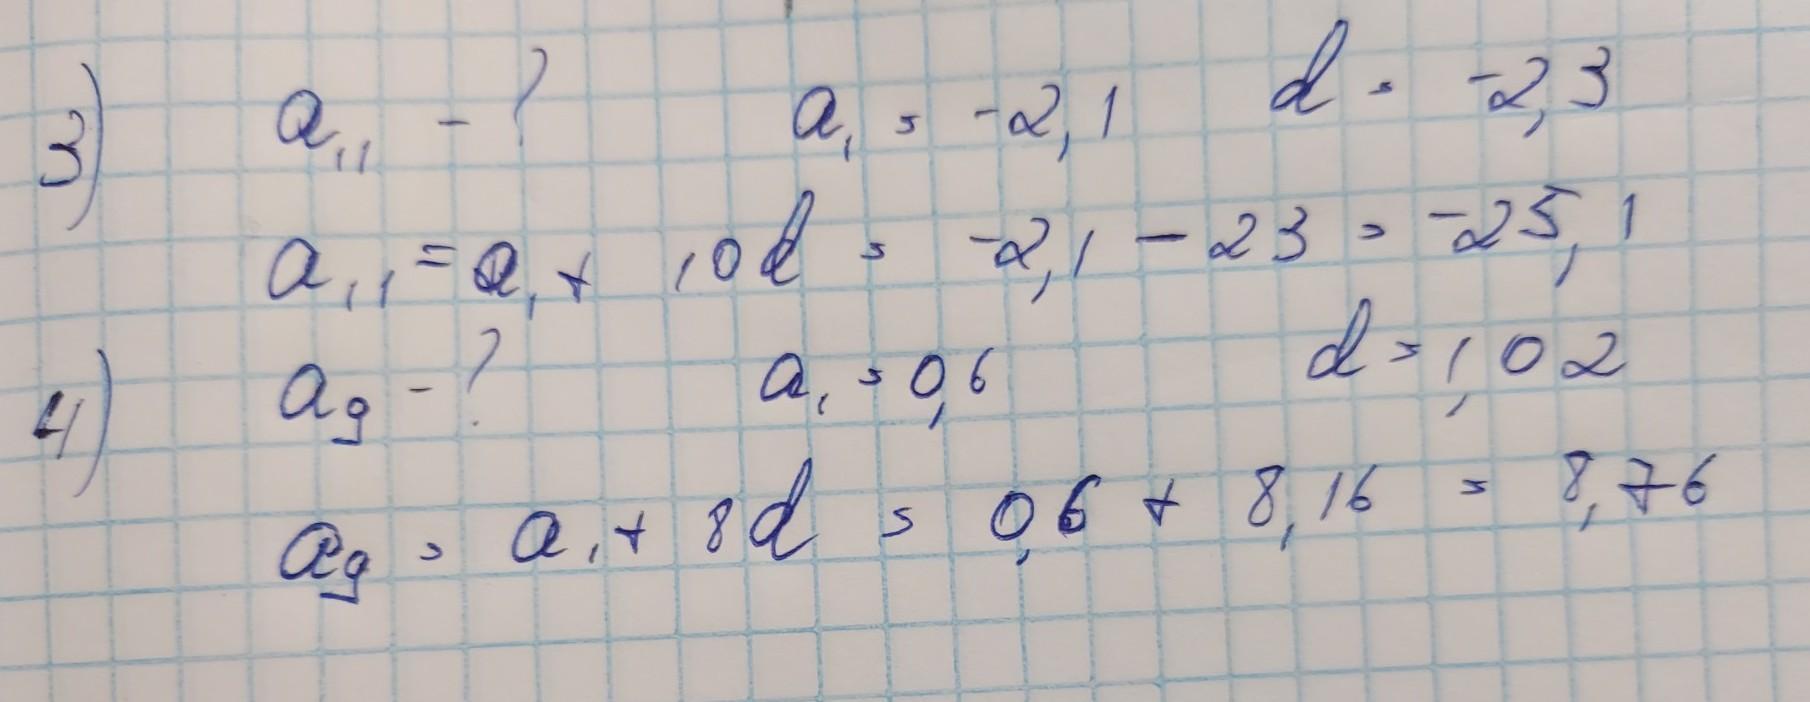 3) a₁₁ - ? a₁ = -2,1 d = -2,3
a₁₁ = a₁ + 10d = -2,1 - 23 = -25,1
4) a₉ - ? a₁ = 0,6 d = 1,02
a₉ = a₁ + 8d = 0,6 + 8,16 = 8,76